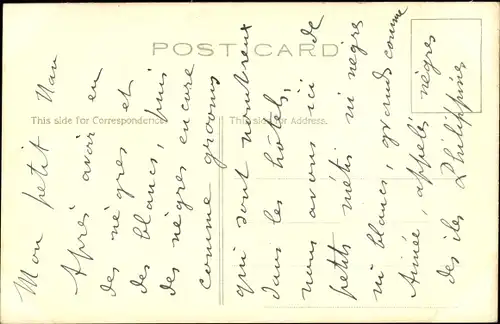 POST CARD
This side for Correspondence.
This side for Address.
Mon petit Nan
Après avoir eu
des nègres et
des blancs, puis
des nègres encore
comme grooms
qui sont nombreux
dans les hôtels,
nous avons ici de
petits métis ni nègres
ni blancs, grands comme
Aimée, appelés nègres
des îles Philippines